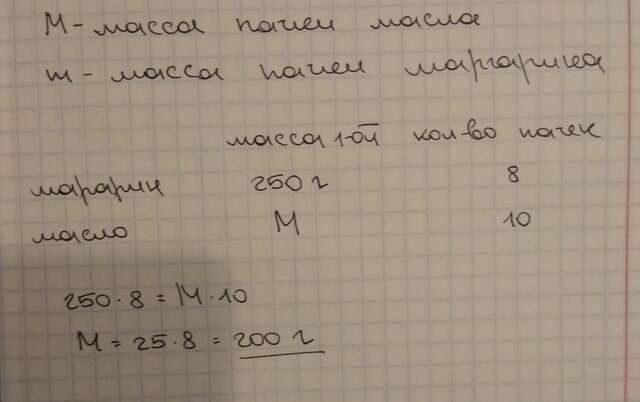 М - масса пачки масла
m - масса пачки маргарина
масса 1-ой кол-во пачек
марарин 250 г 8
масло М 10
250 · 8 = М · 10
М = 25 · 8 = 200 г